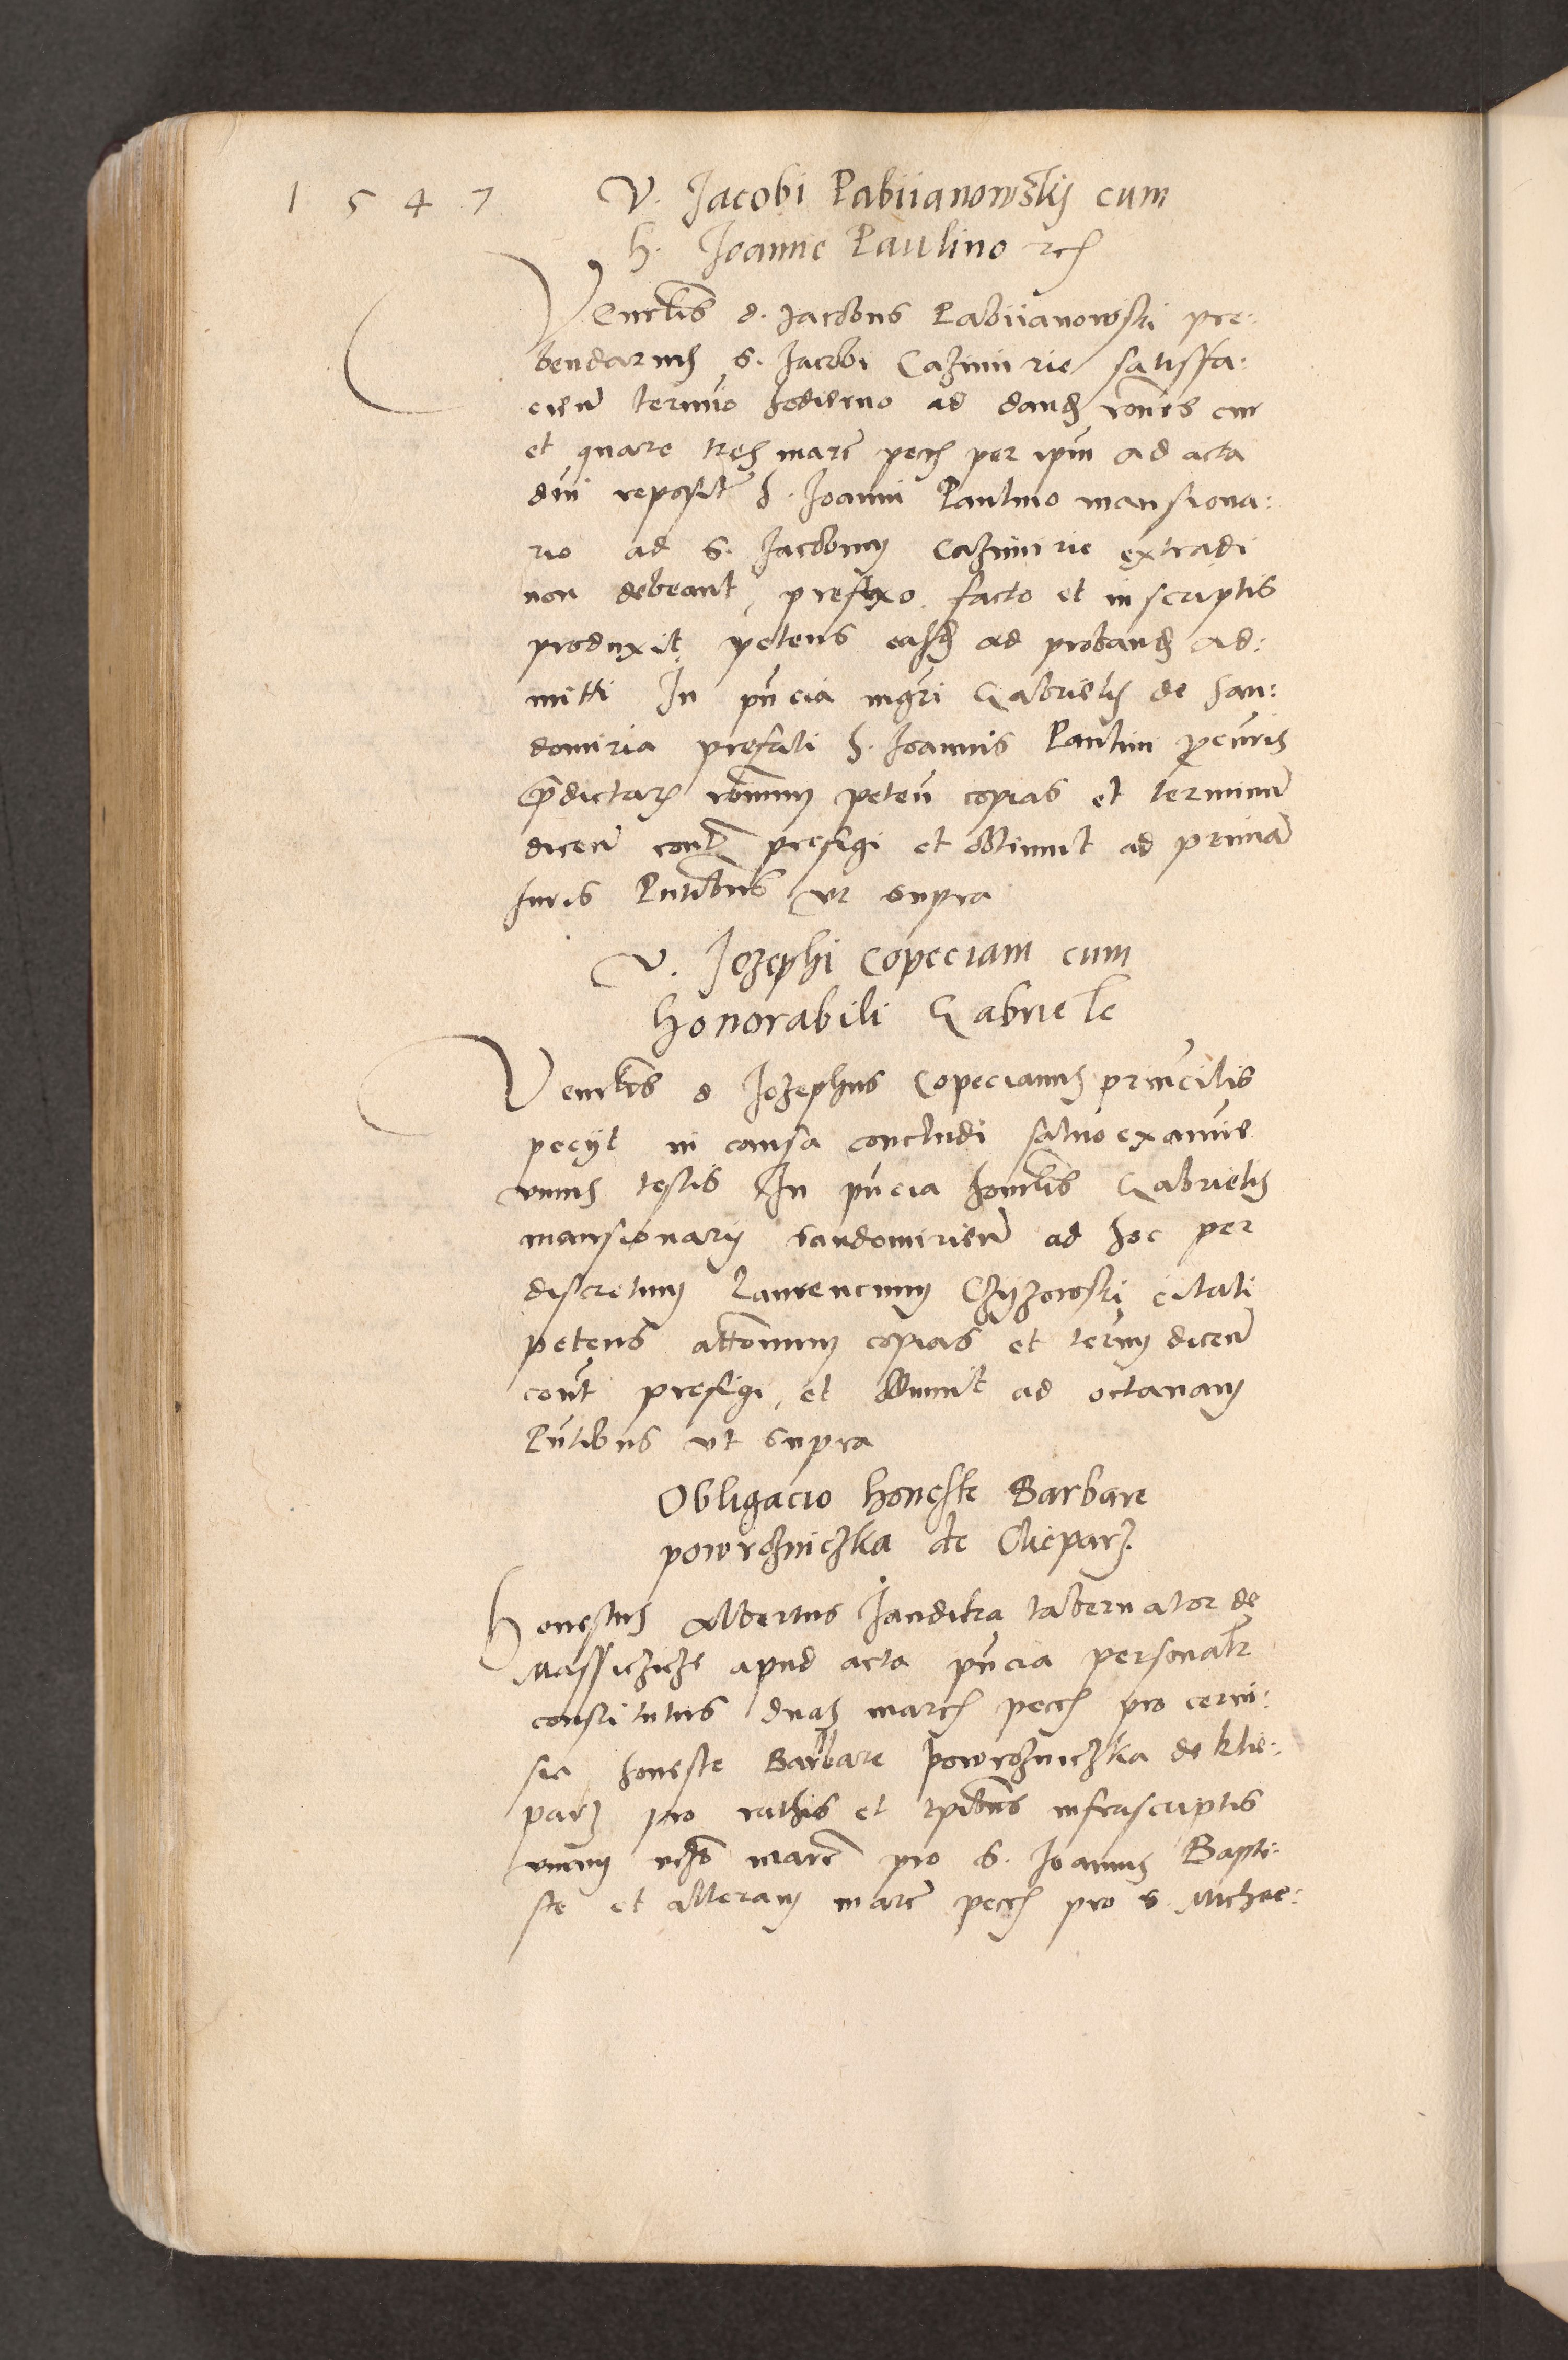 1 5 4 7
V. Jacobi Pabiianowskij cum
h. Joanne Paulino rcƷ
Venerklis d. Jacobus Pabiianowski pre:
bendarius S. Jacobi Cazimirie satisffa:
cien termino hodierno ad dand rones cur
et quare tres marc pecc per ipm ad acta
dni reposit h. Joanni Paulino mansiona:
rio ad S. Jacobum Cazimirie extradi
non debeant, prefixo facto et in scriptis
produxit petens easd ad proband ad:
mitti In pncia mgri Gabrielis de San:
domiria prefati h. Joannis Paulini procuris
predictar ronum peten copias et terminu
dicen contr prefigi et obtinuit ad prima
Juris Pntibus ut supra
V. Jozephi Copeciam cum
Honorabili Gabriele
Venerklis d Jozephus Copecianus princilis
peciit in causa concludi salvo examine
unius testis In pncia honorklis Gabrielis
mansionarij Sandomirien ad hoc per
discretum Laurencium Czyzowski citati
petens attonum copias et termn dicen
cont prefigi, et obtinuit ad octavam
Pntibus ut supra
Obligacio honeste Barbare
powrozniczka de Cleparz.
Honestus Albertus Janditka tabernator de
Massiczicze apud acta pncia personalr
constitutus duas marc pecc pro cervi:
sia honeste Barbare powrozniczka de Kle:
parz pro rathis et tpibus infrascriptis
unam vidz marc pro S. Joannis Bapti:
ste et alteram marc pecc pro S. Michae: